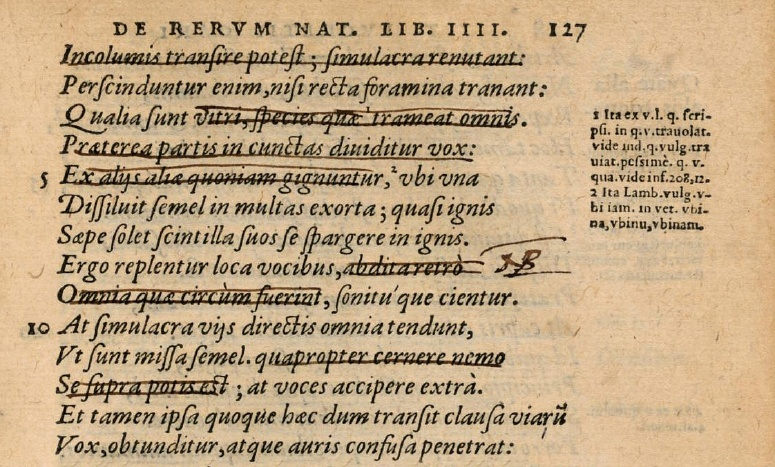 DE RERVM NAT. LIB. IIII. 127
Incolumis transire potest; simulacra renutant:
Perscinduntur enim, nisi recta foramina tranant:
Qualia sunt vitri, species quæ ¹ trameat omnis.
Præterea partis in cunctas diuiditur vox:
5 Ex alijs aliæ quoniam gignuntur, ² vbi vna
Dissiluit semel in multas exorta; quasi ignis
Sæpe solet scintilla suos se spargere in ignis.
Ergo replentur loca vocibus, abdita retrò
Omnia quæ circùm fuerint, sonitu'que cientur.
10 At simulacra vijs directis omnia tendunt,
Vt sunt missa semel. quapropter cernere nemo
Se supra potis est; at voces accipere extrà.
Et tamen ipsa quoque hæc dum transit clausa viarũ
Vox, obtunditur, atque auris confusa penetrat:
1 Ita ex v. l. q. scri-
psi. in q. v. trauolat.
vide ind. q. vulg. tra
uiat. pessimè. q. v.
qua. vide inf. 208, 12.
2 Ita Lamb. vulg. v-
bi iam. in vet. vbi-
na, vbinu, vbinam.